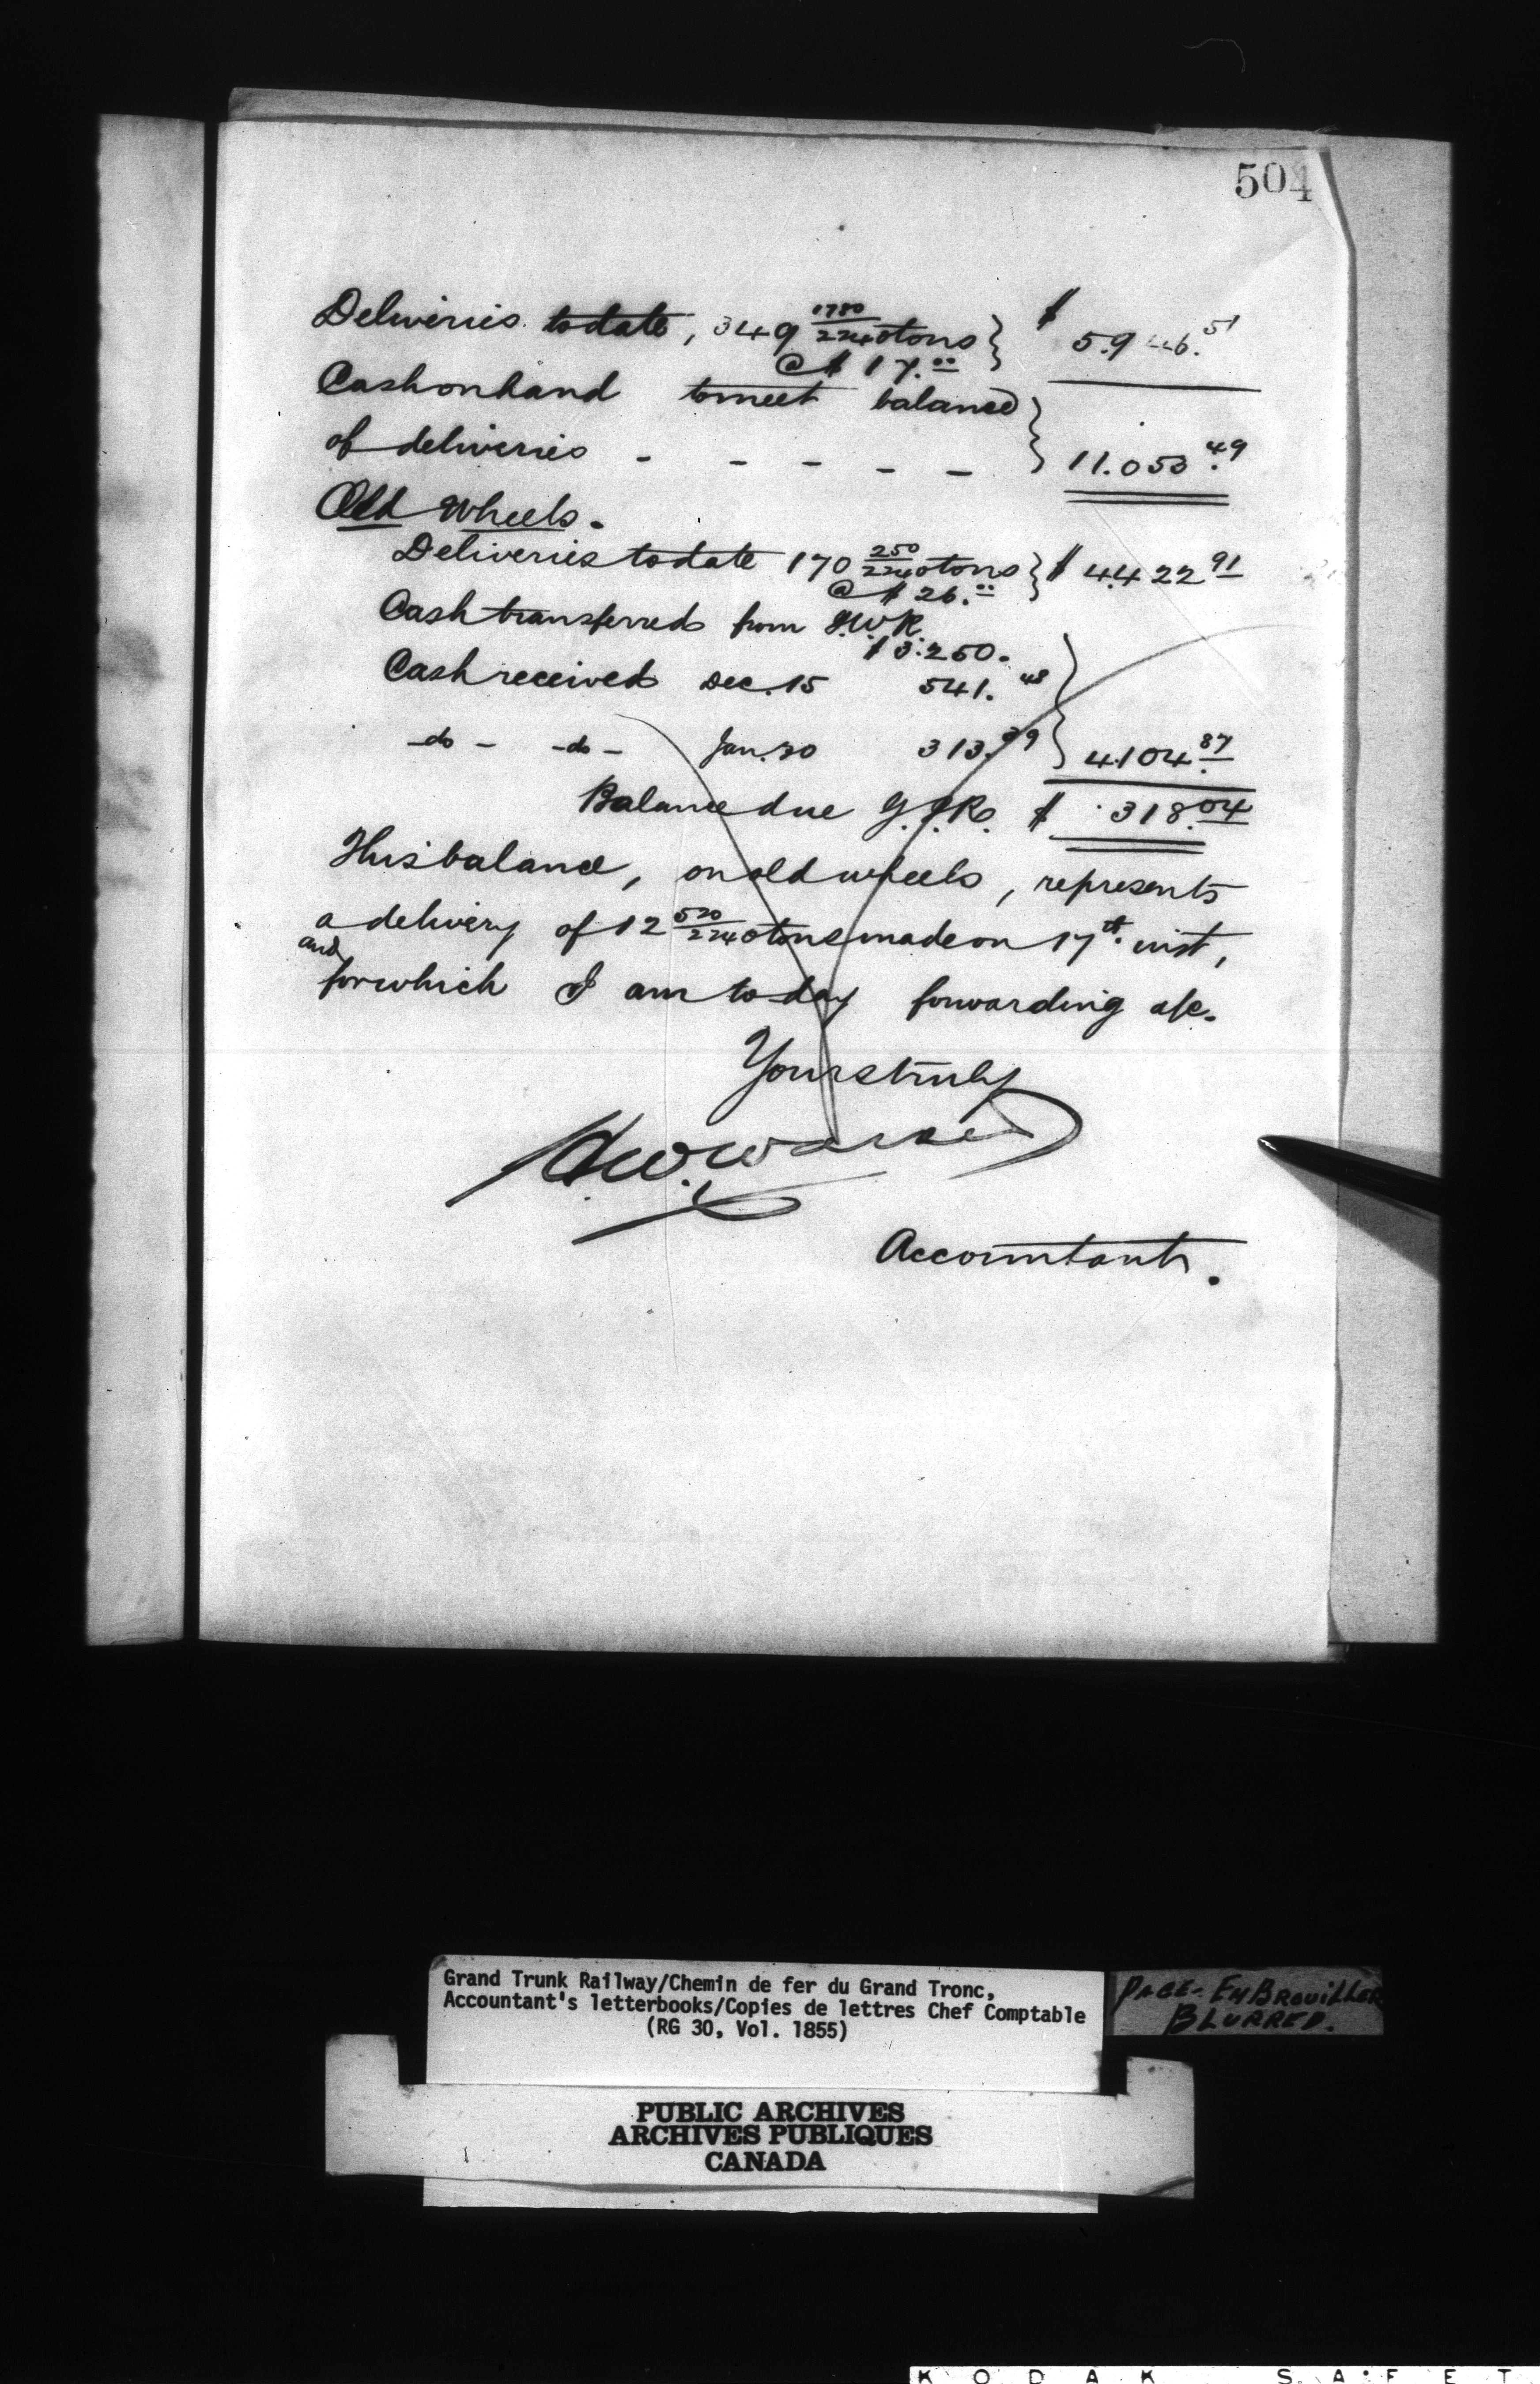 504
Deliveries to date, 349 1780/2240 tons } $ 5.946.51
@ $ 17.00
Cash on hand to meet balance }
of deliveries - - - - - } 11.053.49
Old Wheels.
Deliveries to date 170 250/2240 tons } $ 4.422 91
@ $ 26.00
Cash transferred from G.W.R.
$ 3.250.
Cash received Dec. 15 541. 48
-do- -do- Jan. 20 313.39 } 4.104.87
Balance due G.T.R. $ 318.04
This balance, on old wheels, represents
a delivery of 12 520/2240 tons made on 17th inst,
and
for which I am to-day forwarding a/c.
Yours truly
Accountant.
Grand Trunk Railway/Chemin de fer du Grand Tronc,
Accountant's letterbooks/Copies de lettres Chef Comptable
(RG 30, Vol. 1855)
PAGE - EMBROUILLER
BLURRED.
PUBLIC ARCHIVES
ARCHIVES PUBLIQUES
CANADA
KODAK SAFET